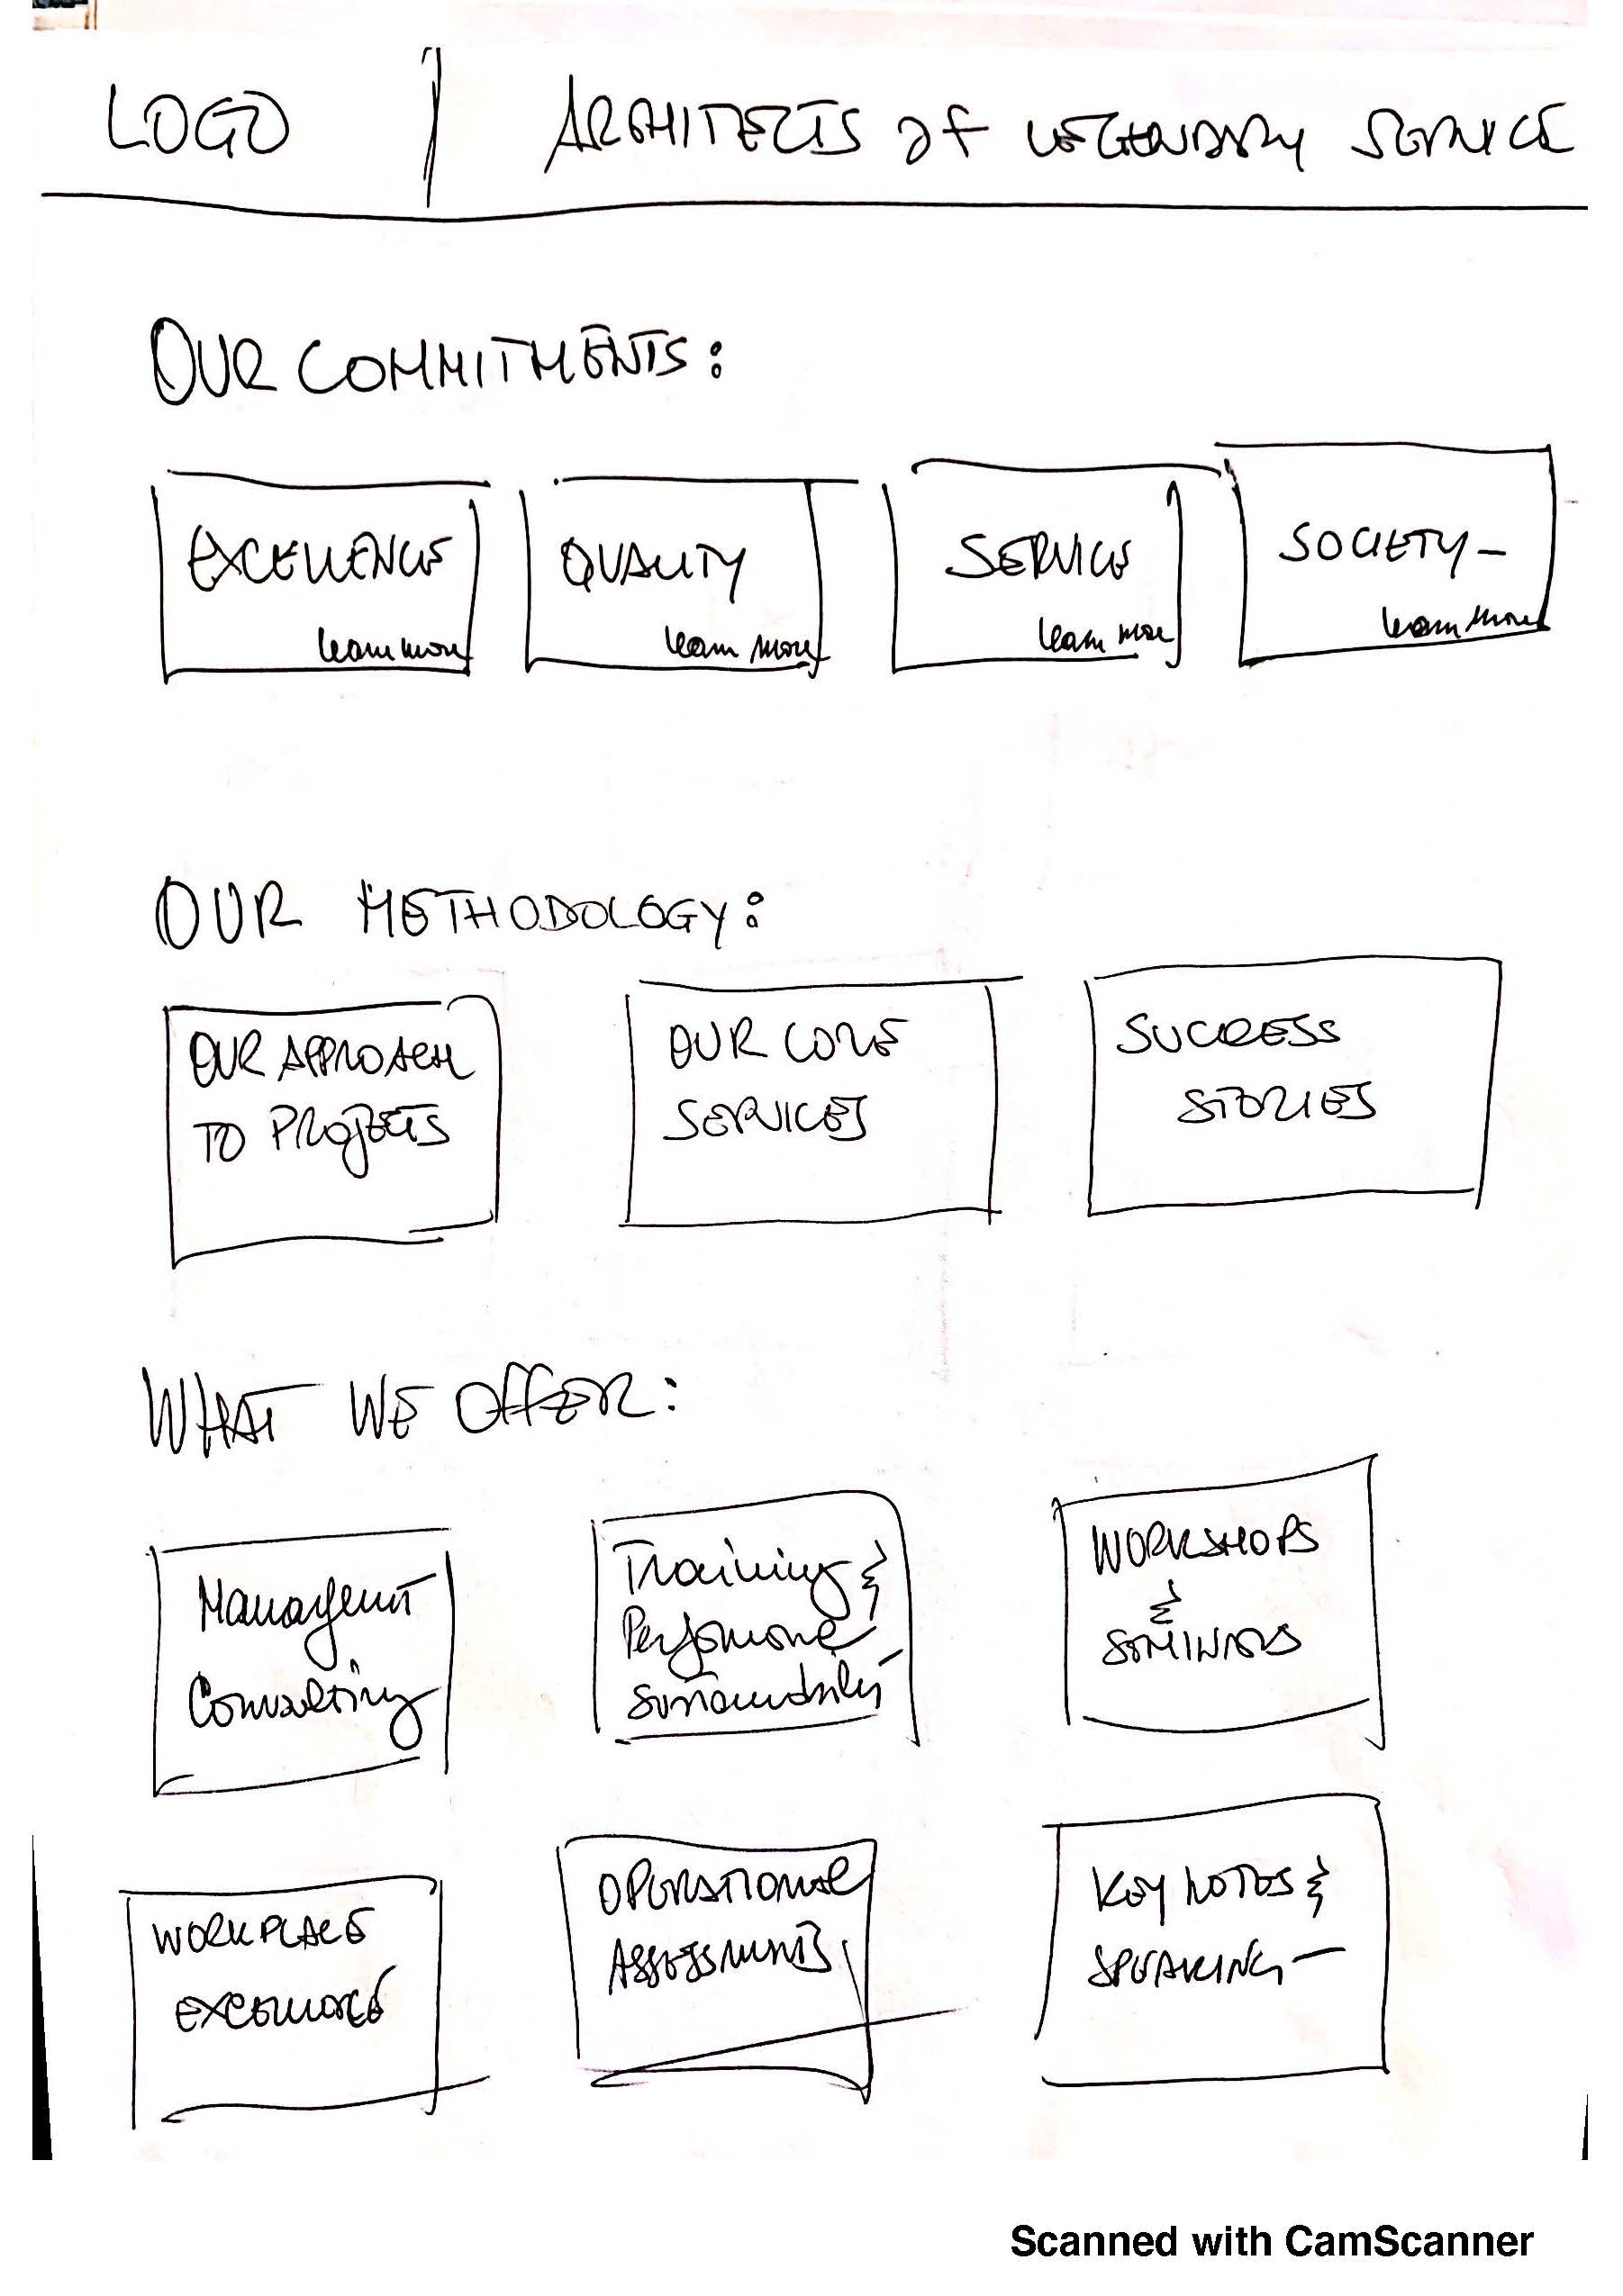 LOGO | ARCHITECTS of LEGENDARY SERVICE
OUR COMMITMENTS:
EXCELLENCE
learn more
QUALITY
learn more
SERVICE
learn more
SOCIETY –
learn more
OUR METHODOLOGY:
OUR APPROACH
TO PROJECTS
OUR CORE
SERVICES
SUCCESS
STORIES
WHAT WE OFFER:
Management
Consulting
Training &
Performance
Sustainability
WORKSHOPS
&
SEMINARS
WORKPLACE
EXCELLENCE
OPERATIONAL
ASSESSMENTS
KEY NOTES &
SPEAKING –
Scanned with CamScanner